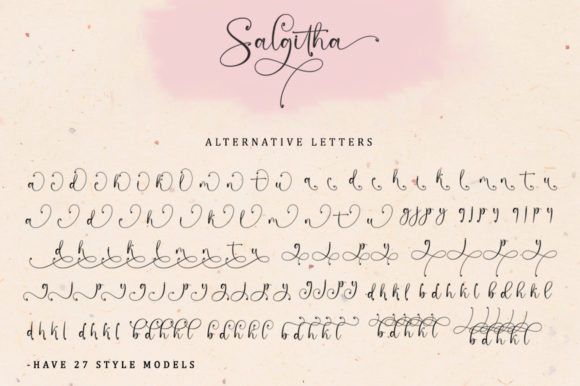 Salgitha
ALTERNATIVE LETTERS
a c d c h i k l m n t u a c d c h i k l m n t u
a c d c h i k l m n t u g j p y g j p y g j p y
d h i k l m n t u g j p y g j p y
g j p y g j p y g j p y g j p y d h k l b d h k l b d h k l
d h k l d h k l b d h k l b d h k l b d h k l b d h k l b d h k l
-HAVE 27 STYLE MODELS